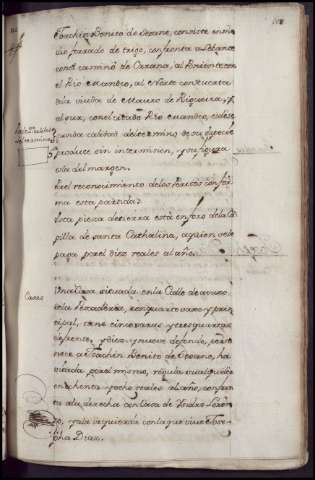 Joachin Benito de Seoane, consiste en me
dio ferrado de trigo, confronta a Levante
con el camino de Carana, al Poniente con
el Rio Mandeo, al Norte con huerta
de la viuda de Mauro de Figueira, y
al sur, con el citado Rio Mandeo, es de se
gunda calidad de los termino de su especie
produce sin intermision, y su figura
es la del margen.
Por el reconocimiento de los Peritos confor
ma esta partida
Esta pieza de tierra está en foro de la Ca
pilla de santa Cathalina, a quien se le
paga por el diez reales al año.
Casas
Una Casa situada en la Calle de
con quarto vajo y prin
cipal, tiene cinco varas y tres quartas
de frente, y diez y nueve de fondo, perte
nece a Joachin Benito de Seoane, ha
vitada por el mismo, regula su alquiler
en ochenta y ocho reales al año, confron
ta a la derecha con Casa de Andres
y a la izquierda con la que vive Jose
pha Diaz.